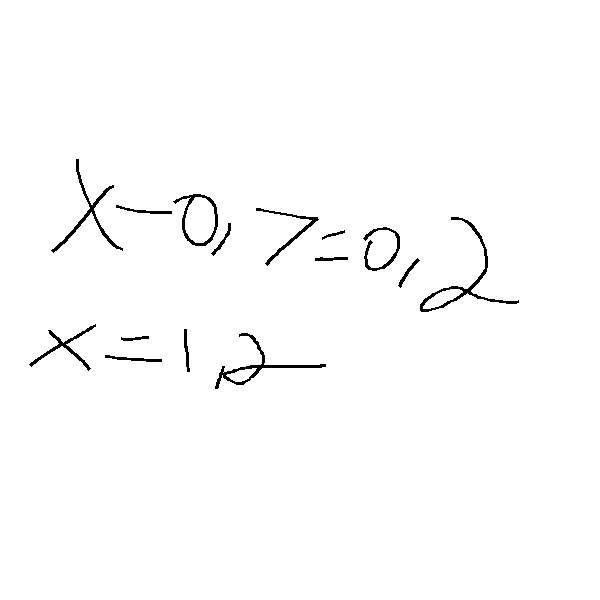 x-0,7=0,2
x=1,2